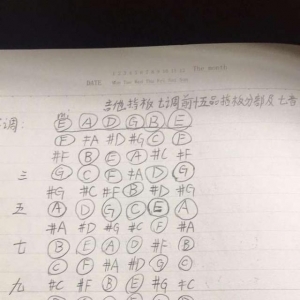 The month
DATE
吉他指板 C调前十五品指板分割及七音
调: E A D G B E
F #A #D #G C F
#F B E A #C #F
三 G C F #A D G
#G #C #F B #D #G
五 A D G C E A
#A #D #G #C F #A
七 B E A D #F B
C F #A #D G C
九 #C #F B E #G #C